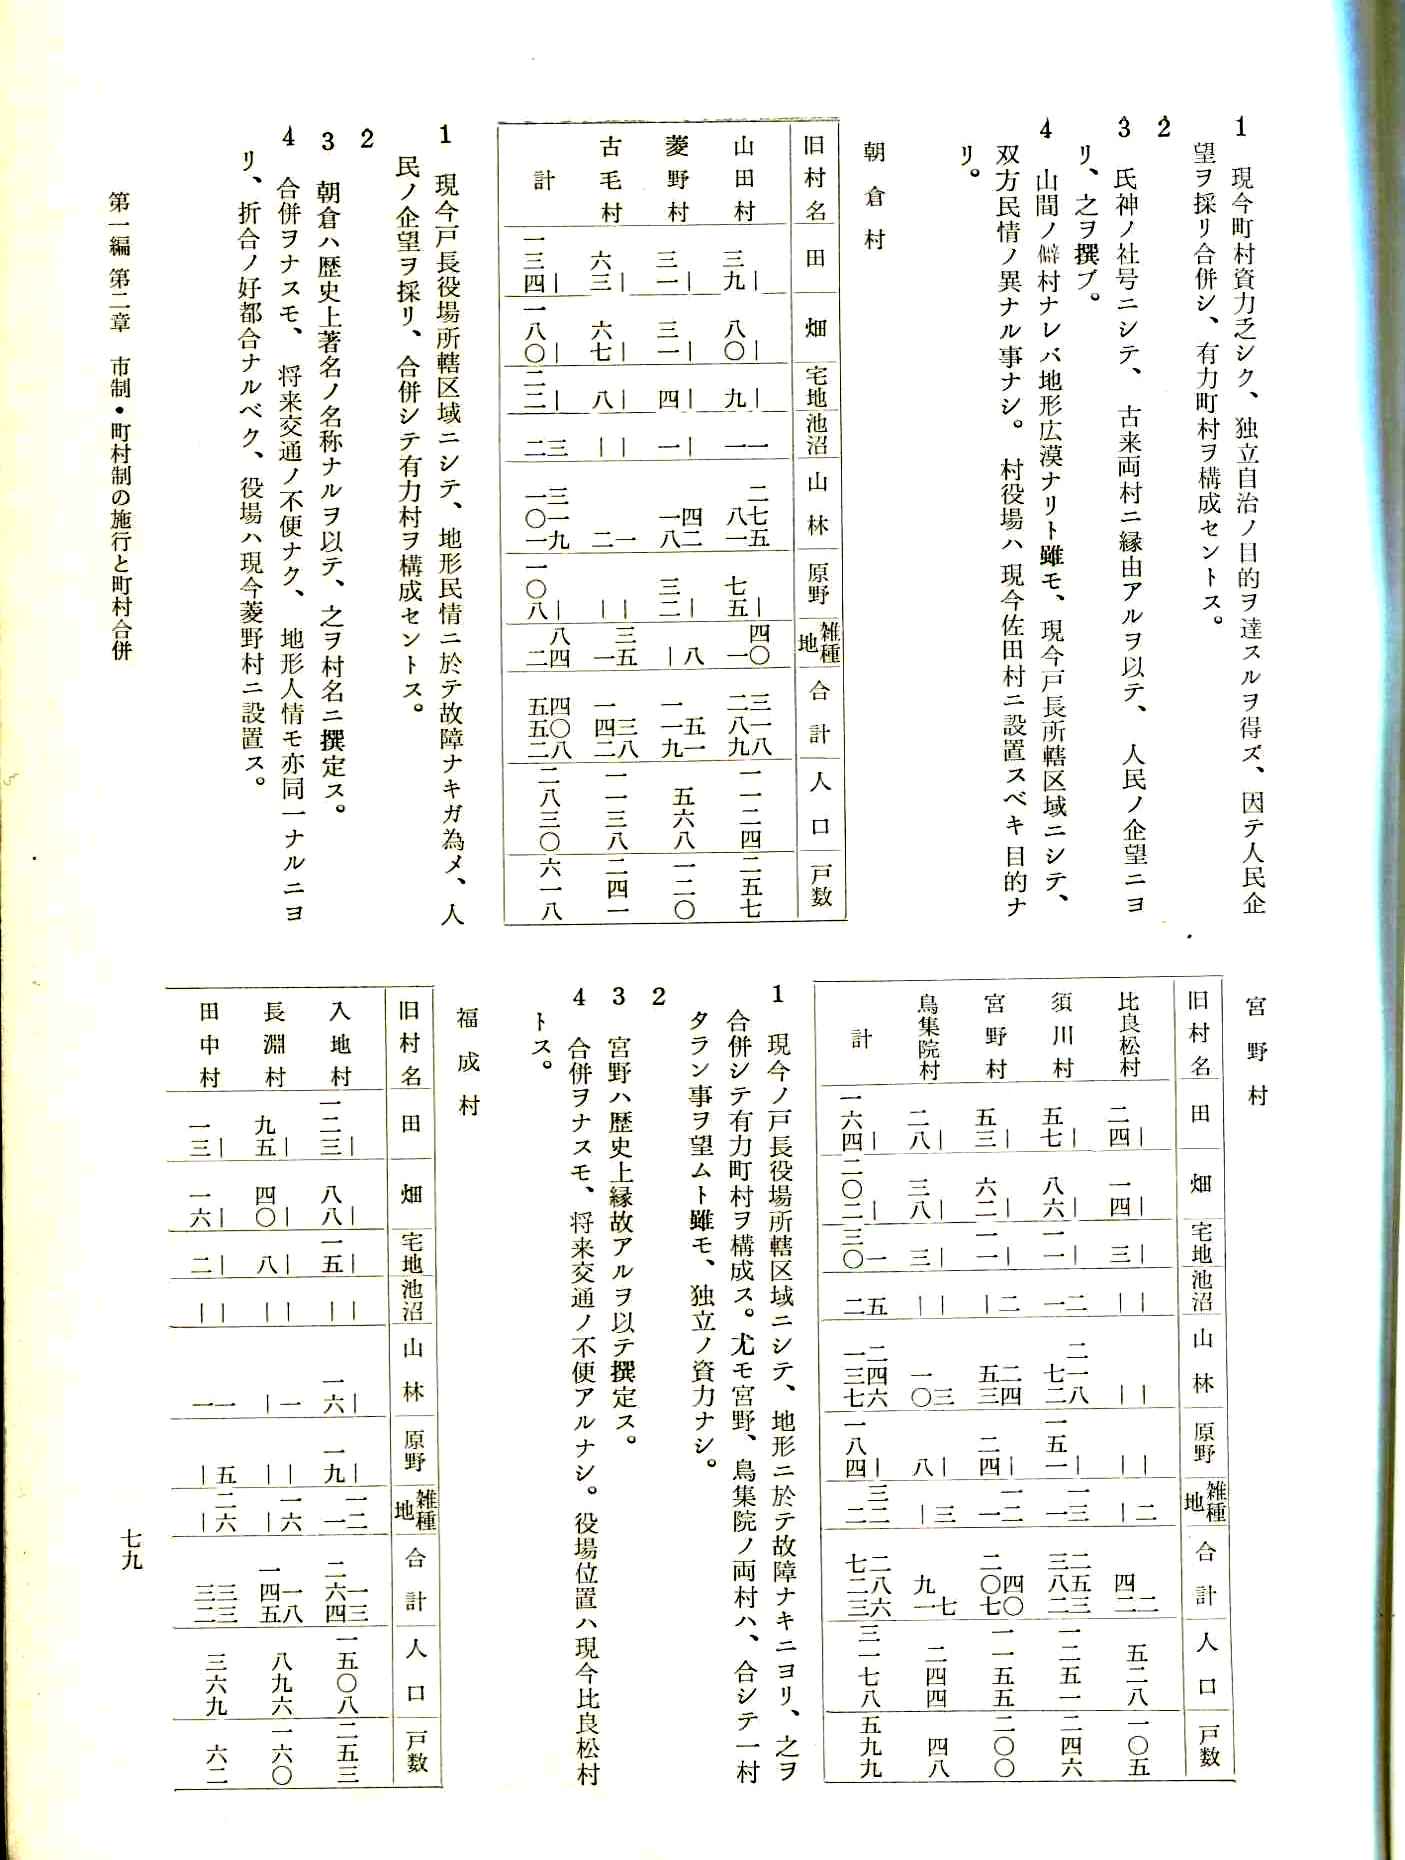 1 現今町村資力乏シク、独立自治ノ目的ヲ達スルヲ得ズ、因テ人民企
望ヲ採リ合併シ、有力町村ヲ構成セントス。
2
3 氏神ノ社号ニシテ、古来両村ニ縁由アルヲ以テ、人民ノ企望ニヨ
リ、之ヲ撰ブ。
4 山間ノ僻村ナレバ地形広漠ナリト雖モ、現今戸長所轄区域ニシテ、
双方民情ノ異ナル事ナシ。村役場ハ現今佐田村ニ設置スベキ目的ナ
リ。
朝倉村
旧村名 田 畑 宅地 池沼 山林 原野 雑種地 合計 人口 戸数
山田村 ｜ 三九 ｜ 八〇 ｜ 九 一 一 二七五 八一 ｜ 七五 四〇 一 三一八 二八九 一一二四 二五七
菱野村 ｜ 三一 ｜ 三一 ｜ 四 ｜ 一 四二 一八 ｜ 三二 八 ｜ 五一 一一九 五六八 一二〇
古毛村 ｜ 六三 ｜ 六七 ｜ 八 ｜ ｜ 一 二 ｜ ｜ 三五 一 三八 一四二 一一三八 二四一
計 ｜ 一三四 ｜ 一八〇 ｜ 二二 三 二 三一九 一〇一 ｜ 一〇八 八四 二 四〇八 五五二 二八三〇 六一八
1 現今戸長役場所轄区域ニシテ、地形民情ニ於テ故障ナキガ為メ、人
民ノ企望ヲ採リ、合併シテ有力村ヲ構成セントス。
2
3 朝倉ハ歴史上著名ノ名称ナルヲ以テ、之ヲ村名ニ撰定ス。
4 合併ヲナスモ、将来交通ノ不便ナク、地形人情モ亦同一ナルニヨ
リ、折合ノ好都合ナルベク、役場ハ現今菱野村ニ設置ス。
宮野村
旧村名 田 畑 宅地 池沼 山林 原野 雑種地 合計 人口 戸数
比良松村 ｜ 二四 ｜ 一四 ｜ 三 ｜ ｜ ｜ ｜ ｜ ｜ 二 ｜ 二 四二 五二八 一〇五
須川村 ｜ 五七 ｜ 八六 ｜ 一一 二 一 二一八 七二 ｜ 一五一 一三 一 二五三 三八二 一二五一 二四六
宮野村 ｜ 五三 ｜ 六二 ｜ 一一 二 ｜ 二四 五三 ｜ 二四 一二 一 四〇 二〇七 一一五五 二〇〇
鳥集院村 ｜ 二八 ｜ 三八 ｜ 三 ｜ ｜ 三 一〇 ｜ 八 三 ｜ 七 九一 二四四 四八
計 ｜ 一六四 ｜ 二〇二 一 三〇 五 二 二四六 一三七 ｜ 一八四 三二 二 二八六 七二三 三一七八 五九九
1 現今ノ戸長役場所轄区域ニシテ、地形ニ於テ故障ナキニヨリ、之ヲ
合併シテ有力町村ヲ構成ス。尤モ宮野、鳥集院ノ両村ハ、合シテ一村
タラン事ヲ望ムト雖モ、独立ノ資力ナシ。
2
3 宮野ハ歴史上縁故アルヲ以テ撰定ス。
4 合併ヲナスモ、将来交通ノ不便アルナシ。役場位置ハ現今比良松村
トス。
福成村
旧村名 田 畑 宅地 池沼 山林 原野 雑種地 合計 人口 戸数
入地村 ｜ 一二三 ｜ 八八 ｜ 一五 ｜ ｜ ｜ 一六 ｜ 一九 一二 一 一三 二六四 一五〇八 二五三
長淵村 ｜ 九五 ｜ 四〇 ｜ 八 ｜ ｜ 一 ｜ ｜ ｜ 一六 ｜ 一八 一四五 八九六 一六〇
田中村 ｜ 一三 ｜ 一六 ｜ 二 ｜ ｜ 一 一 五 ｜ 二六 ｜ 三三 三二 三六九 六二
第一編 第二章 市制・町村制の施行と町村合併
七九